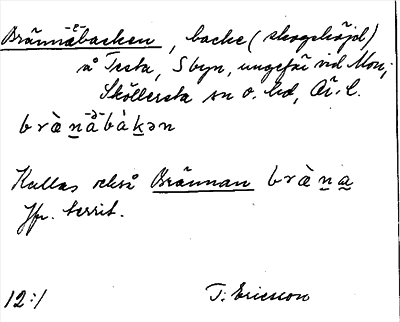 Brännäbacken, backe (skogshöjd)
å Testa, S byn, ungefär vid Mon;
Sköllersta sn o. hd, Ör. l.
brä̀nabàkən
Kallas också Brännan brä̀na
Jfr. territ.
12:1 T. Ericsson